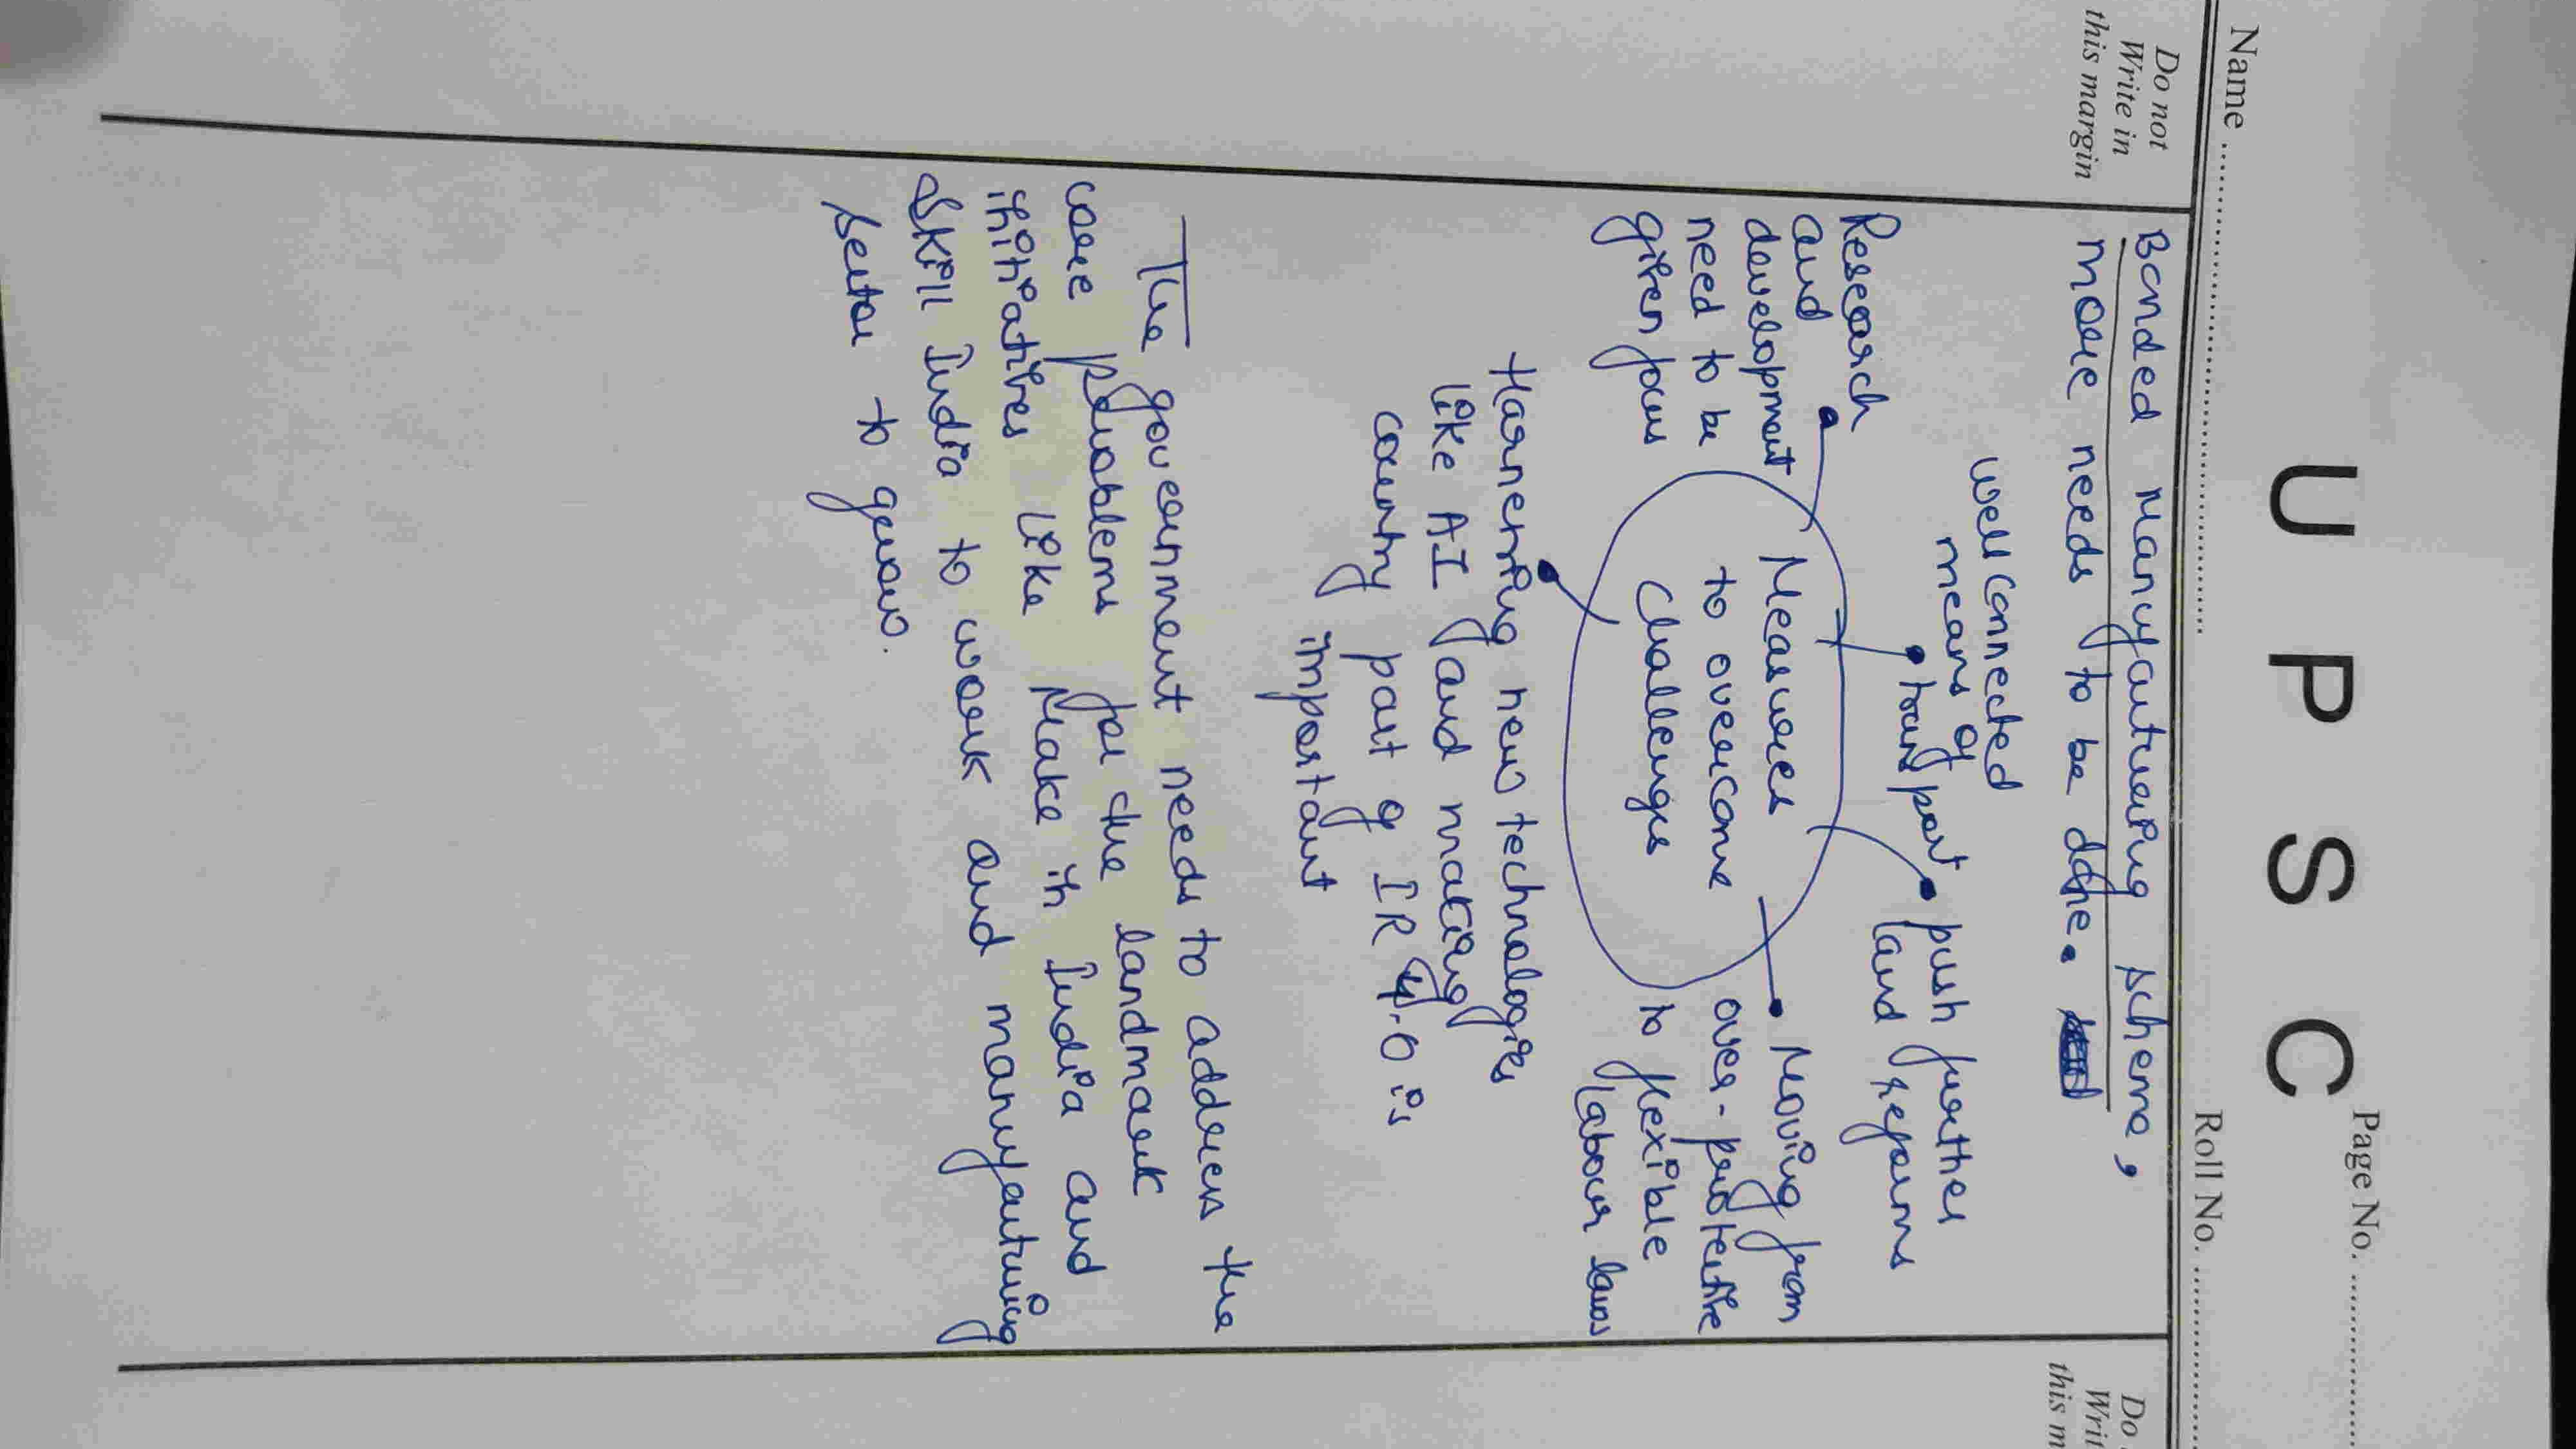 UPSC
Page No. ..................
Name ..................................................
Roll No. ..................
Do not
Write in
this margin
Do
Writ
this m
Bonded Manufacturing scheme,
more needs to be done.
well connected
means of
transport
push further
land reforms
Research
and
development
need to be
given focus
Measures
to overcome
challenges
Moving from
over-protective
to flexible
labour laws
Harnessing new technologies
like AI and making
country part of IR 4.0 is
important
The government needs to address the
core problems for the landmark
initiatives like Make in India and
Skill India to work and manufacturing
sector to grow.